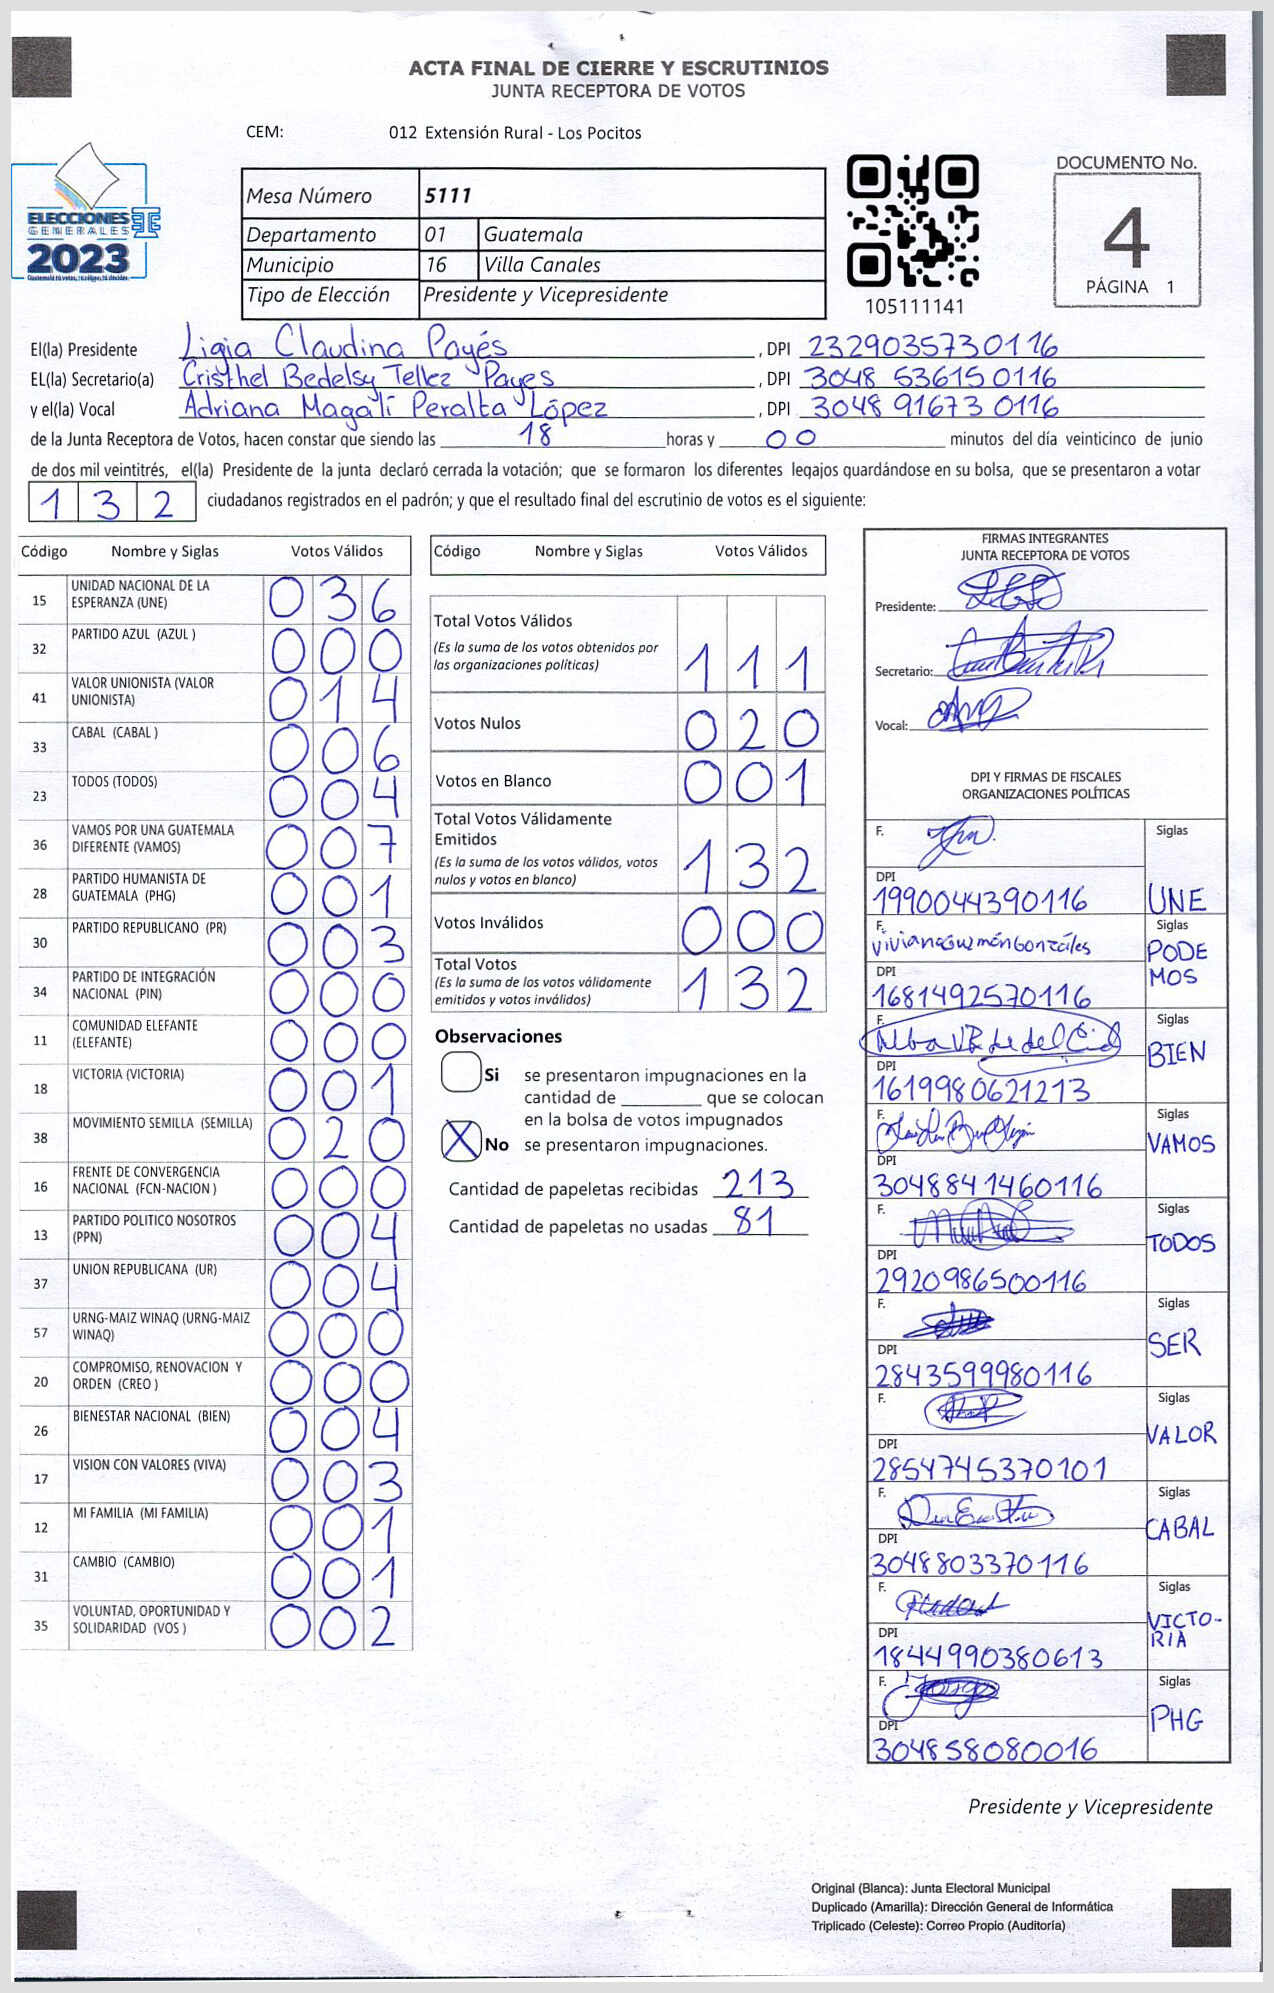 ACTA FINAL DE CIERRE Y ESCRUTINIOS
JUNTA RECEPTORA DE VOTOS
CEM: 012 Extensión Rural - Los Pocitos
ELECCIONES
GENERALES
2023
Mesa Número 5111
Departamento 01 Guatemala
Municipio 16 Villa Canales
Tipo de Elección Presidente y Vicepresidente
105111141
DOCUMENTO No.
4
PÁGINA 1
El(la) Presidente Ligia Claudina Payés , DPI 2329035730116
EL(la) Secretario(a) Cristhel Bedelsy Tellez Payes , DPI 3048 53615 0116
y el(la) Vocal Adriana Magalí Peralta López , DPI 3048 91673 0116
de la Junta Receptora de Votos, hacen constar que siendo las 18 horas y 00 minutos del día veinticinco de junio
de dos mil veintitrés, el(la) Presidente de la junta declaró cerrada la votación; que se formaron los diferentes legajos guardándose en su bolsa, que se presentaron a votar
132 ciudadanos registrados en el padrón; y que el resultado final del escrutinio de votos es el siguiente:
Código Nombre y Siglas Votos Válidos
15 UNIDAD NACIONAL DE LA ESPERANZA (UNE) 036
32 PARTIDO AZUL (AZUL ) 000
41 VALOR UNIONISTA (VALOR UNIONISTA) 014
33 CABAL (CABAL ) 006
23 TODOS (TODOS) 004
36 VAMOS POR UNA GUATEMALA DIFERENTE (VAMOS) 007
28 PARTIDO HUMANISTA DE GUATEMALA (PHG) 001
30 PARTIDO REPUBLICANO (PR) 003
34 PARTIDO DE INTEGRACIÓN NACIONAL (PIN) 000
11 COMUNIDAD ELEFANTE (ELEFANTE) 000
18 VICTORIA (VICTORIA) 001
38 MOVIMIENTO SEMILLA (SEMILLA) 020
16 FRENTE DE CONVERGENCIA NACIONAL (FCN-NACION ) 000
13 PARTIDO POLITICO NOSOTROS (PPN) 004
37 UNION REPUBLICANA (UR) 004
57 URNG-MAIZ WINAQ (URNG-MAIZ WINAQ) 000
20 COMPROMISO, RENOVACION Y ORDEN (CREO ) 000
26 BIENESTAR NACIONAL (BIEN) 004
17 VISION CON VALORES (VIVA) 003
12 MI FAMILIA (MI FAMILIA) 001
31 CAMBIO (CAMBIO) 001
35 VOLUNTAD, OPORTUNIDAD Y SOLIDARIDAD (VOS ) 002
Código Nombre y Siglas Votos Válidos
Total Votos Válidos
(Es la suma de los votos obtenidos por las organizaciones políticas) 111
Votos Nulos 020
Votos en Blanco 001
Total Votos Válidamente Emitidos
(Es la suma de los votos válidos, votos nulos y votos en blanco) 132
Votos Inválidos 000
Total Votos
(Es la suma de los votos válidamente emitidos y votos inválidos) 132
Observaciones
Si se presentaron impugnaciones en la
cantidad de ________ que se colocan
en la bolsa de votos impugnados
X No se presentaron impugnaciones.
Cantidad de papeletas recibidas 213
Cantidad de papeletas no usadas 81
FIRMAS INTEGRANTES
JUNTA RECEPTORA DE VOTOS
Presidente:
Secretario:
Vocal:
DPI Y FIRMAS DE FISCALES
ORGANIZACIONES POLÍTICAS
F. Siglas
DPI
1990044390116 UNE
F. Siglas
Viviana Guzmán Gonzáles PODE
DPI MOS
1681492570116
F. Siglas
DPI BIEN
1619980621213
F. Siglas
DPI VAMOS
3048841460116
F. Siglas
DPI TODOS
2920986500116
F. Siglas
DPI SER
2843599980116
F. Siglas
DPI VALOR
2854745370101
F. Siglas
DPI CABAL
3048803370116
F. Siglas
DPI VICTO-
RIA
1844990380613
F. Siglas
DPI PHG
304858080016
Presidente y Vicepresidente
Original (Blanca): Junta Electoral Municipal
Duplicado (Amarilla): Dirección General de Informática
Triplicado (Celeste): Correo Propio (Auditoría)